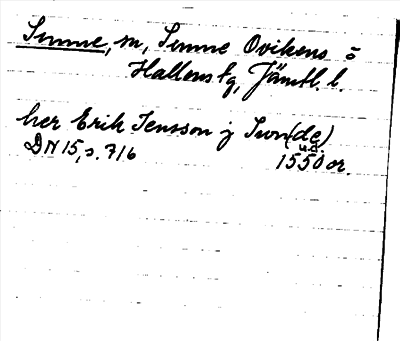 Sunne, m, Sunne Ovikens o
Hallens tg, Jämtl. l.
her Erik Jensson j Swn(de)
u.d.
DN 15, s. 716 1550 or.